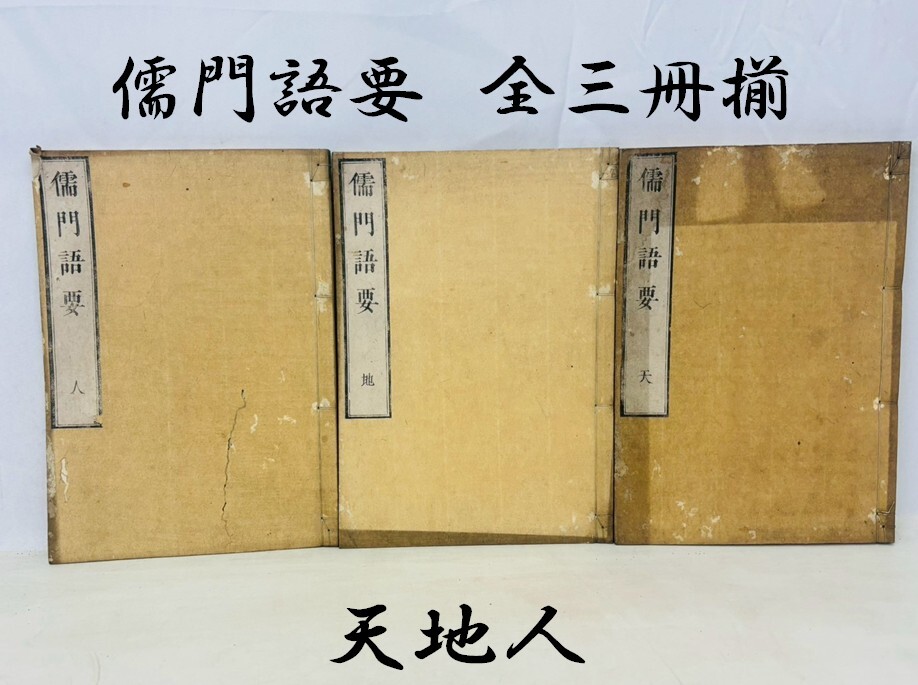 儒門語要 全三冊揃
儒門語要 天
儒門語要 地
儒門語要 人
天地人